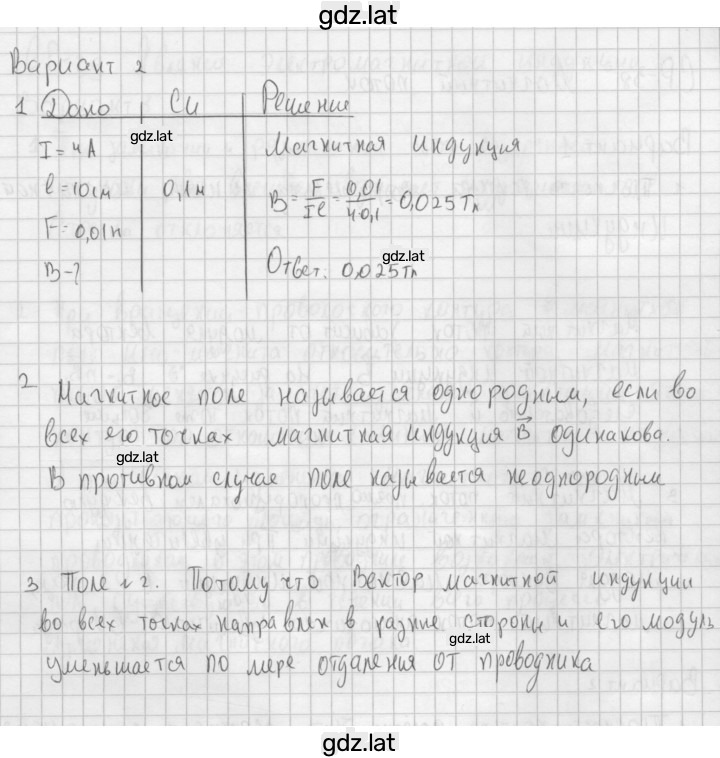 gdz.lat
Вариант 2
1 Дано Си Решение
gdz.lat
I = 4А Магнитная индукция
l = 10см 0,1м B = F/Il = 0,01/4·0,1 = 0,025Тл
F = 0,01н
B-? gdz.lat
Ответ: 0,025Тл
2 Магнитное поле называется однородным, если во
всех его точках магнитная индукция B⃗ одинакова.
gdz.lat
В противном случае поле называется неоднородным
3 Поле №2. Потому что Вектор магнитной индукции
во всех точках направлен в разные стороны и его модуль
gdz.lat
уменьшается по мере отдаления от проводника
gdz.lat